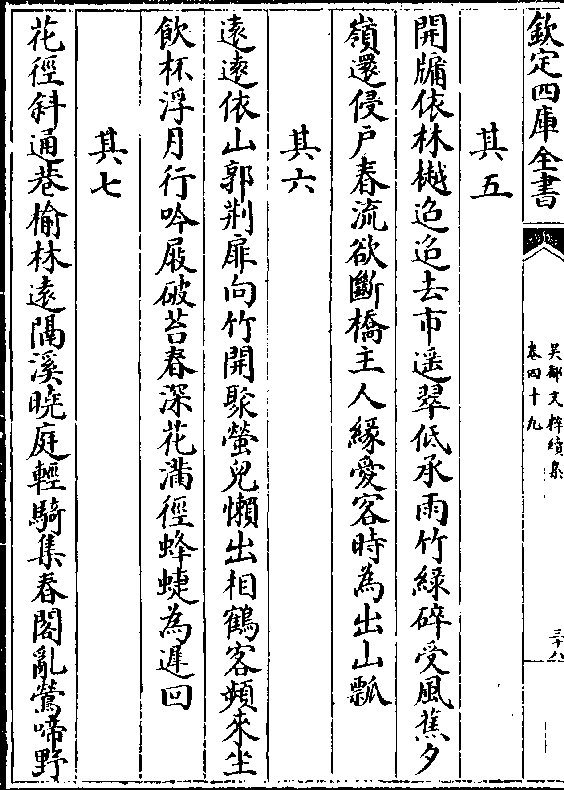 欽定四庫全書
吳都文粹續集
卷四十九
三十八
其五
開牖依林樾迢迢去市遥翠低承雨竹緑碎受風蕉夕
嶺還侵戸春流欲斷橋主人緣愛客時為出山瓢
其六
逺逺依山郭荆扉向竹開聚螢兒懶出相鶴客頻來坐
飲杯浮月行吟屐破苔春深花滿徑蜂蜨為遲回
其七
花徑斜通巷榆林逺隔溪曉庭輕騎集春閣亂鶯啼野